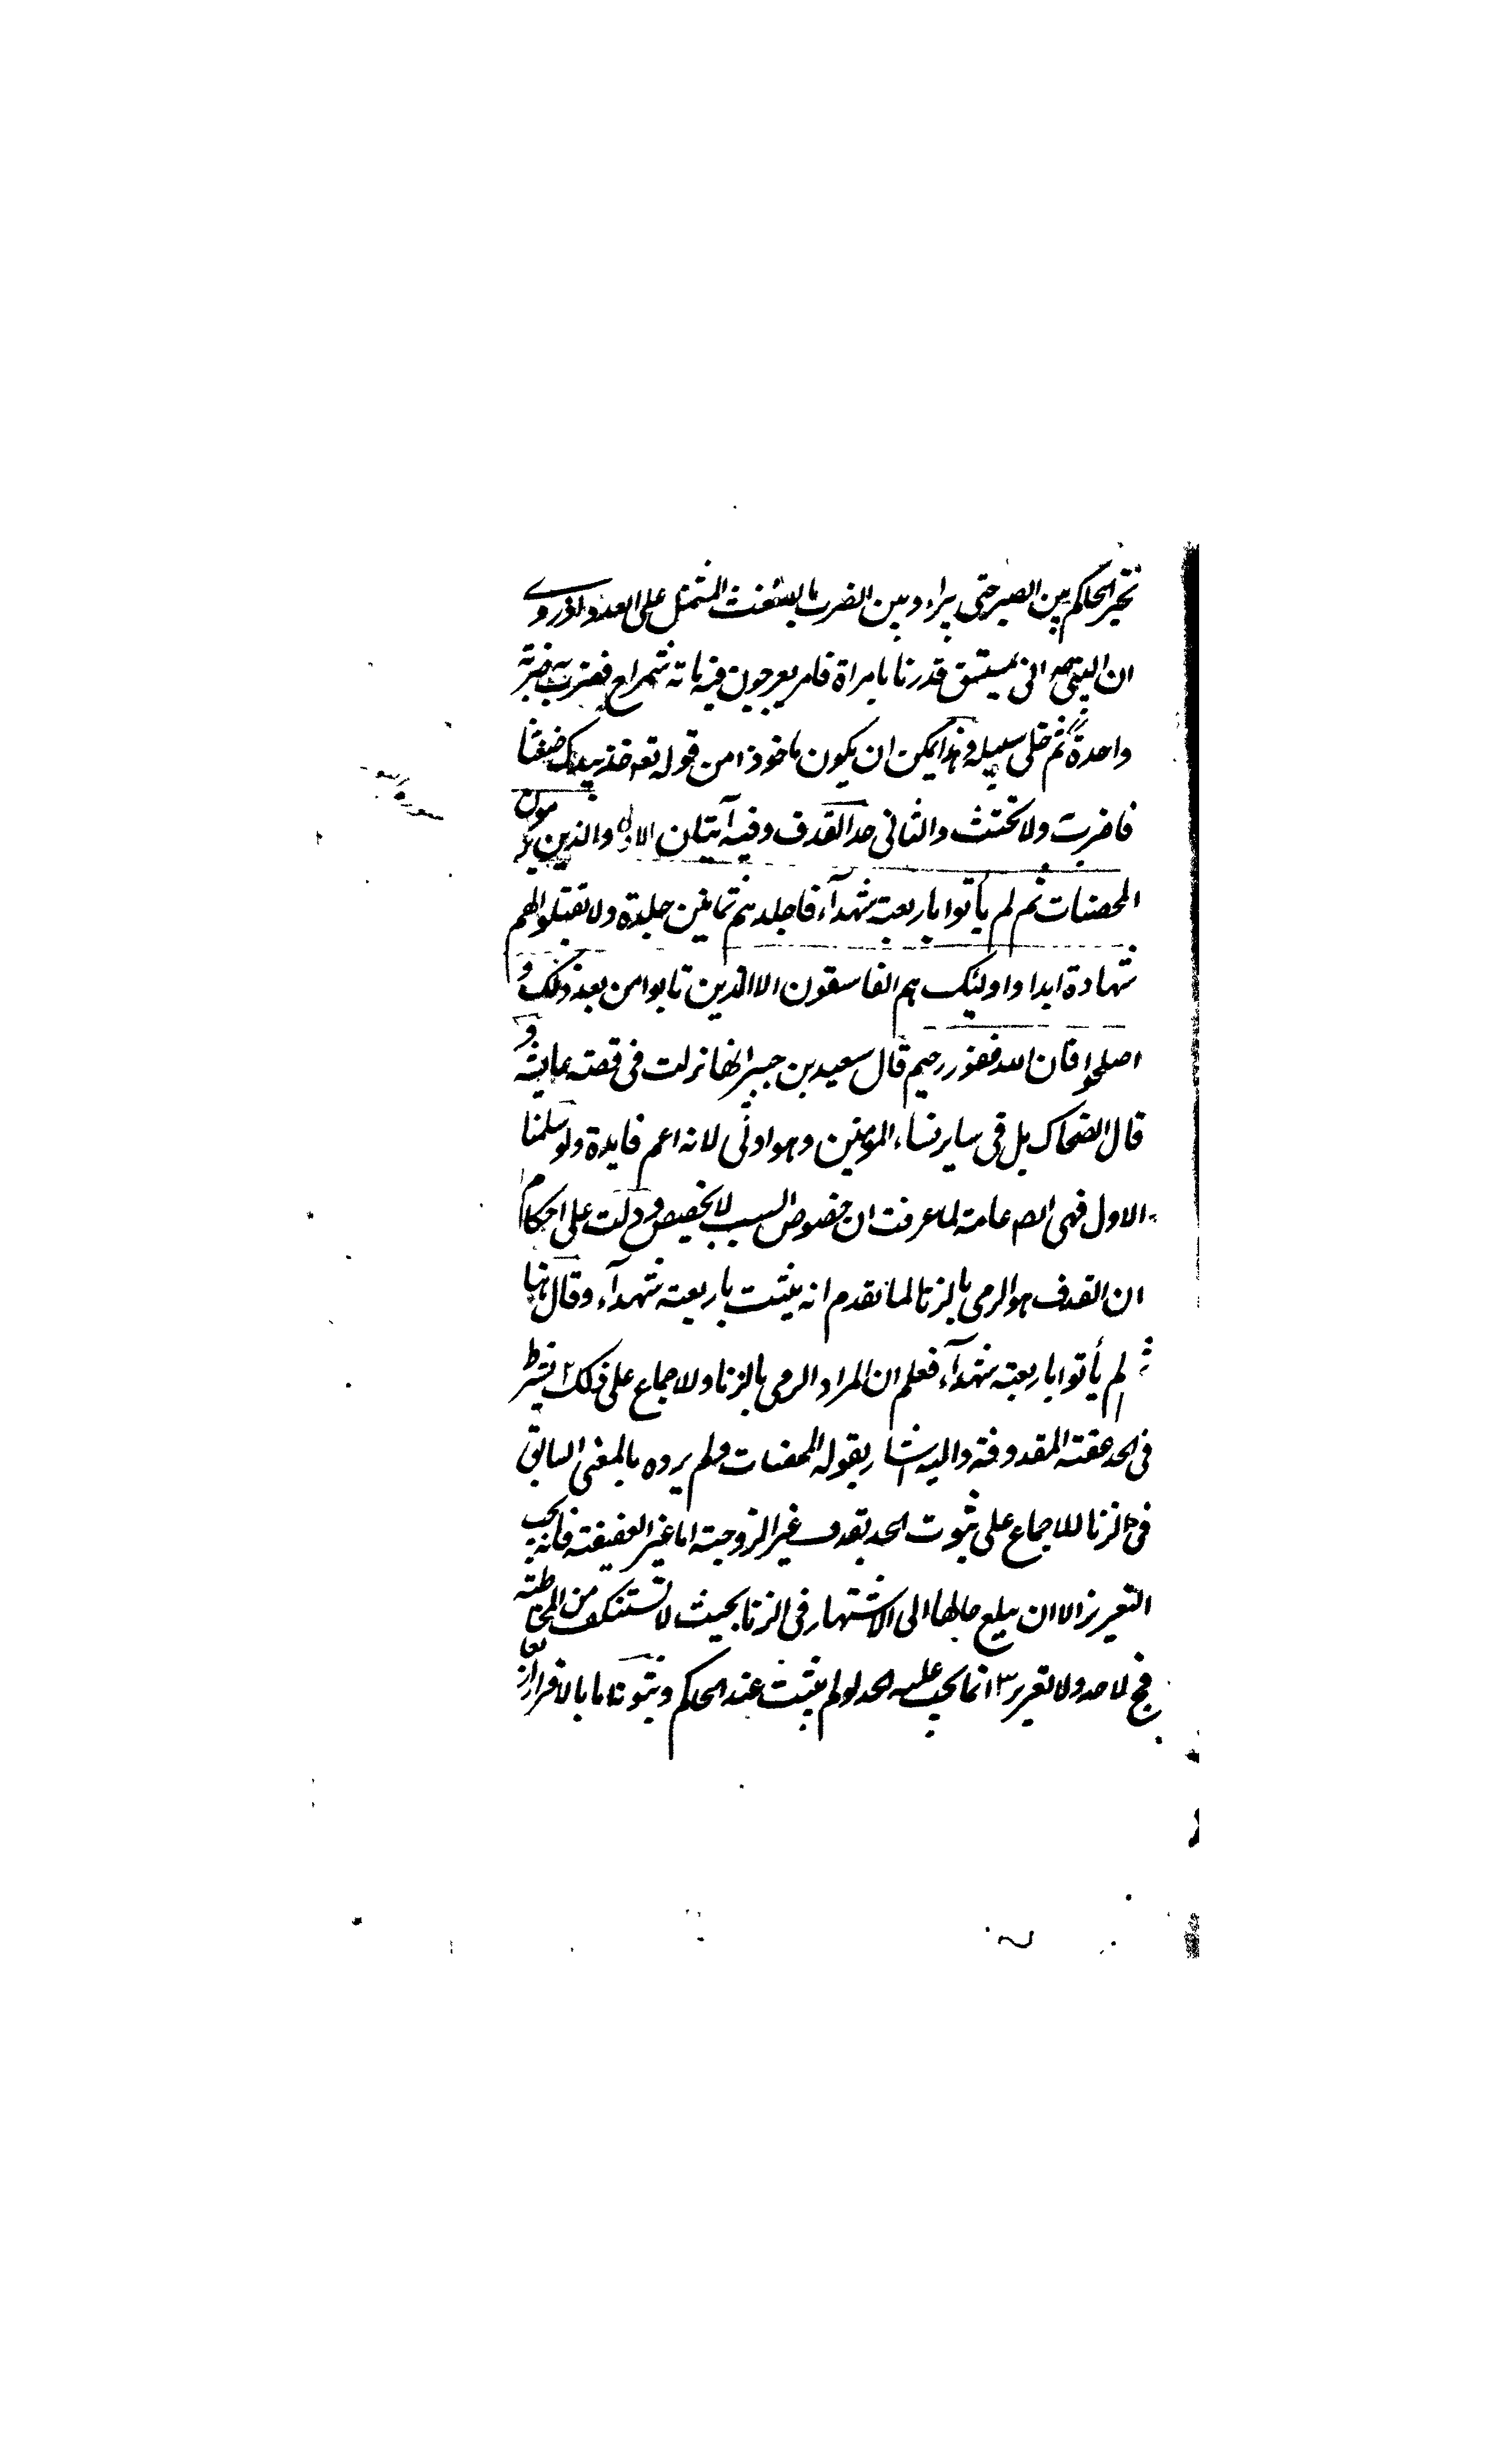 تخير الحاكم بين الصبر حتى يبراء وبين الضرب بالضغث المشتمل على العدد لما روى
ان النبي صه اتى بمستسق قد زنا بامراة فامر بعرجون فيه ماته شمراخ فضرب به ضربة
واحدة ثم خلى سبيله وهذا يمكن ان يكون ماخوذا من قوله تعه خذ بيدك ضغثا
فاضرب ولا تحنث والثانى حد القذف وفيه آيتان الاولى والذين يرمون
المحصنات ثم لم يأتوا باربعة شهدآء فاجلدهم ثمانين جلدة ولا تقبلوا لهم
شهادة ابدا واولئك هم الفاسقون الا الذين تابوا من بعد ذلك و
اصلحوا فان الله غفور رحيم قال سعيد بن جبير انها نزلت فى قصة عايشة و
قال الضحاك بل فى ساير نساء المومنين وهو اولى لانه اعم فايدة ولو سلمنا
الاول فهى عامة لما عرفت ان خصوص السبب لا يخصص ودلت على احكام
ان القذف هو الرمى بالزنا لما تقدم انه يثبت باربعة شهدآء وقال هنا
ثم لم يأتوا باربعة شهدآء فعلم ان المراد الرمى بالزنا وللاجماع على ذلك ٢ يشترط
فى الحد عفة المقذوفة واليه اشار بقوله المحصنات ولم يرده بالمعنى السابق
فى الزنا للاجماع على ثبوت الحد بقذف غير الزوجة اما غير العفيفة فانه يجب
التعزير الا ان يبلغ حالها الى الاشتهار فى الزنا بحيث لا تستنكف من المخاطبة
فح لا حد ولا تعزير ٣ انما يجب عليه الحد لو لم يثبت عند الحاكم وثبوتها بالاقرار